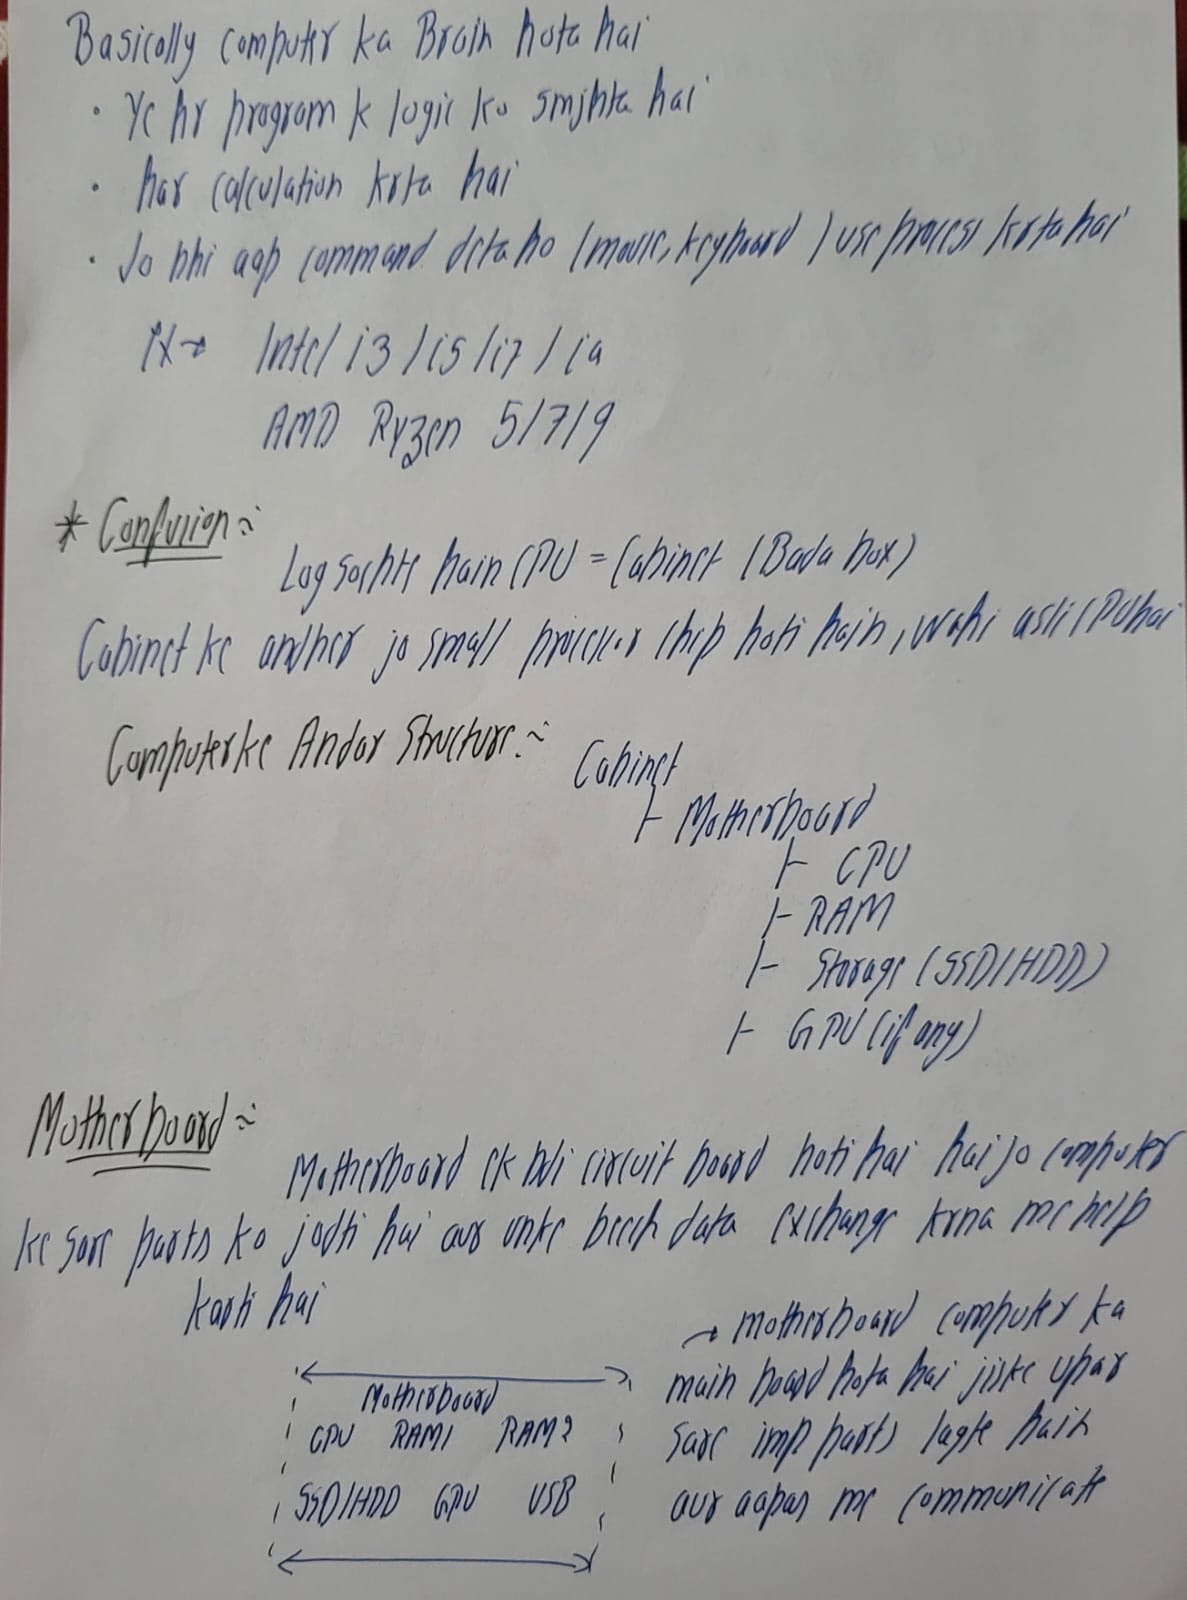 Basically computer ka Brain hota hai
• Ye hr program k logic ko smjhta hai
• har calculation krta hai
• Jo bhi aap command deta ho (mouse, keyboard) use process krta hai
Ex→ Intel i3/i5/i7/i9
AMD Ryzen 5/7/9
* Confusion:~
Log sochte hain CPU = Cabinet (Bada box)
Cabinet ke andher jo small processor chip hoti hain, wahi asli CPU hai
Computer ke Andar Structure:~ Cabinet
├ Motherboard
├ CPU
├ RAM
├ Storage (SSD/HDD)
├ GPU (if any)
Motherboard:~
Motherboard ek bdi circuit board hoti hai hai jo computer
ke sare parts ko jodti hai aur unke beech data exchange krna me help
karti hai
→ motherboard computer ka
main board hota hai jiske upar
sare imp parts lagte hain
aur aapas me communicate
Motherboard
CPU RAM1 RAM2
SSD/HDD GPU USB